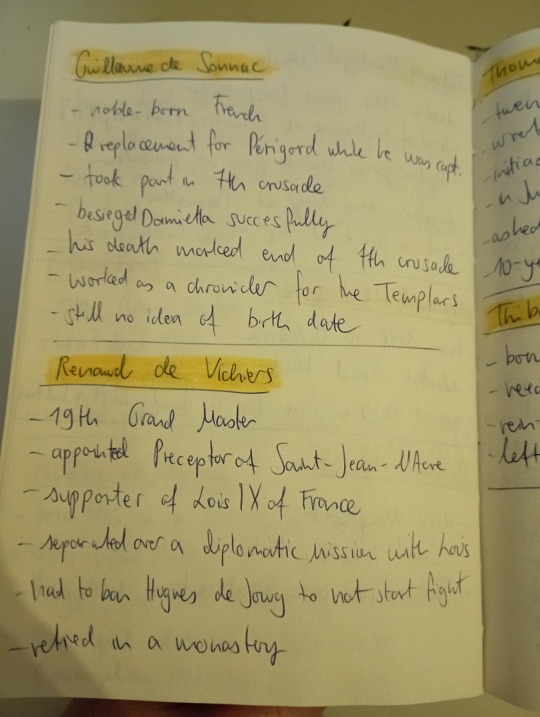 Guillaume de Sonnac
- noble-born French
- Replacement for Périgord while he was capt.
- took part in 7th crusade
- besieged Damietta succesfully
- his death marked end of 7th crusade
- worked as a chronicler for the Templars
- still no idea of birth date
Renaud de Vichiers
- 19th Grand Master
- appointed Preceptor of Saint-Jean-d'Acre
- supporter of Lois IX of France
- separated over a diplomatic mission with Lois
- had to ban Hugues de Jouy to not start fight
- retired in a monastery
Thom
- twen
- initia
- asked
- 10-ye
Thib
- born
- left